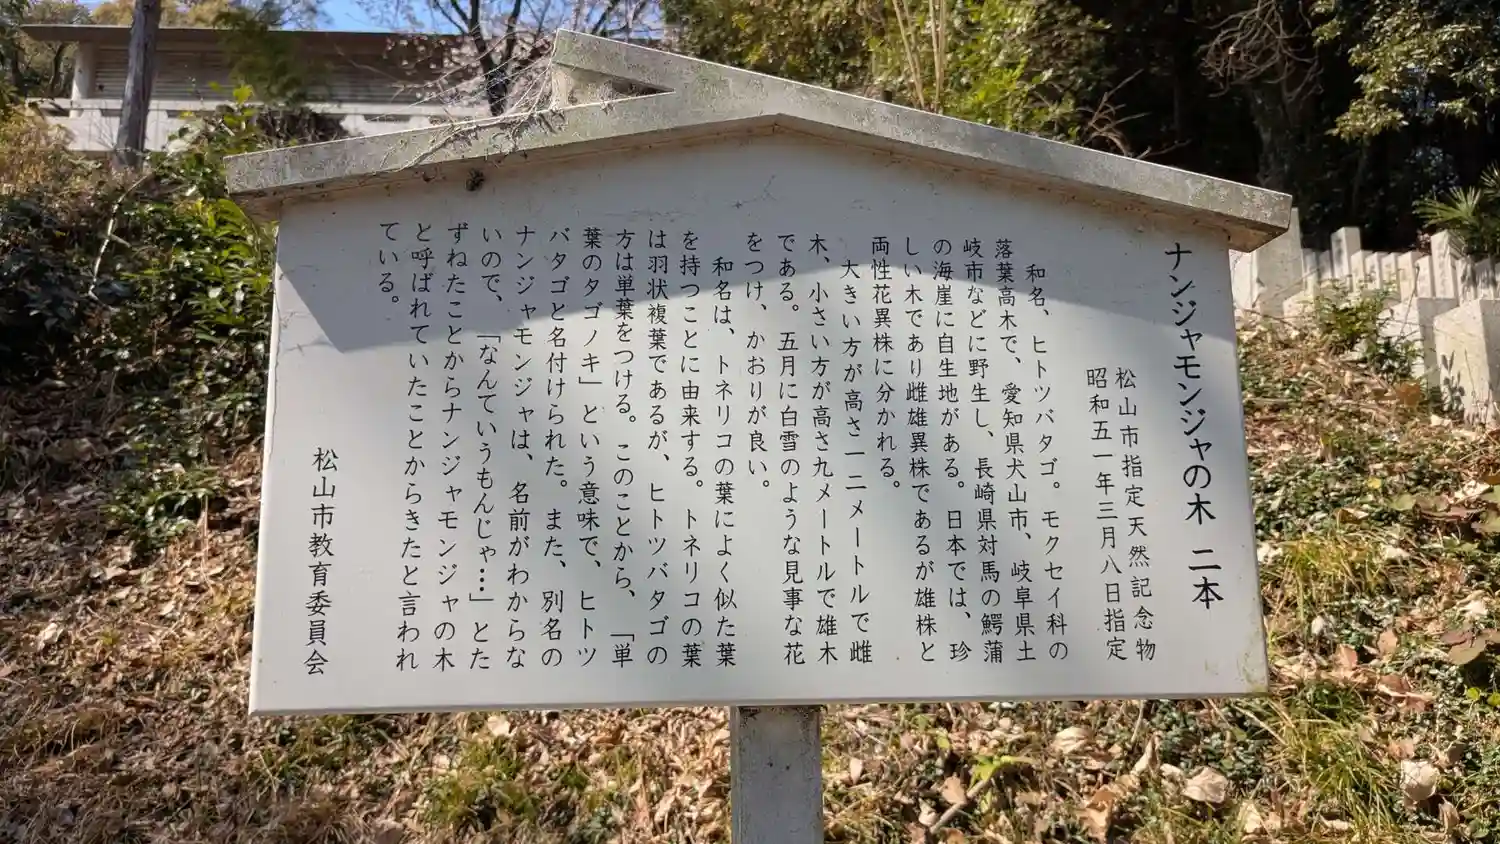 ナンジャモンジャの木 二本
松山市指定天然記念物
昭和五一年三月八日指定
和名、ヒトツバタゴ。モクセイ科の
落葉高木で、愛知県犬山市、岐阜県土
岐市などに野生し、長崎県対馬の鰐浦
の海崖に自生地がある。日本では、珍
しい木であり雌雄異株であるが雄株と
両性花異株に分かれる。
大きい方が高さ一二メートルで雌
木、小さい方が高さ九メートルで雄木
である。五月に白雪のような見事な花
をつけ、かおりが良い。
和名は、トネリコの葉によく似た葉
を持つことに由来する。トネリコの葉
は羽状複葉であるが、ヒトツバタゴの
方は単葉をつける。このことから、「単
葉のタゴノキ」という意味で、ヒトツ
バタゴと名付けられた。また、別名の
ナンジャモンジャは、名前がわからな
いので、「なんていうもんじゃ…」とた
ずねたことからナンジャモンジャの木
と呼ばれていたことからきたと言われ
ている。
松山市教育委員会